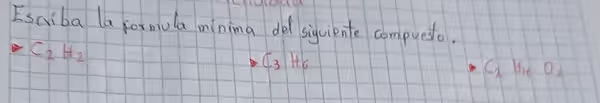 Escriba la formula mínima del siguiente compuesto.
▸ C2 H2 ▸ C3 H6